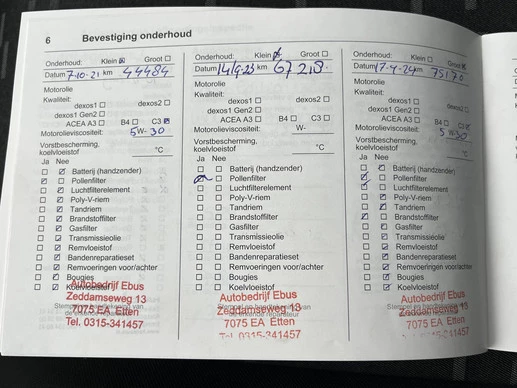 6 Bevestiging onderhoud
Onderhoud: Klein ☒ Groot ☐
Datum 7-10-21 km 44484
Motorolie
Kwaliteit:
dexos1 ☐ dexos2 ☐
dexos1 Gen2 ☐
ACEA A3 ☐ B4 ☐ C3 ☒
Motorolieviscositeit: 5W-30
Vorstbescherming,
koelvloeistof °C
Ja Nee
Batterij (handzender)
Pollenfilter
Luchtfilterelement
Poly-V-riem
Tandriem
Brandstoffilter
Gasfilter
Transmissieolie
Remvloeistof
Bandenreparatieset
Remvoeringen voor/achter
Bougies
Koelvloeistof
Autobedrijf Ebus
Zeddamseweg 13
7075 EA Etten
Tel. 0315-341457
Onderhoud: Klein ☒ Groot ☐
Datum 14/9-23 km
Motorolie
Kwaliteit:
dexos1 ☐ dexos2 ☐
dexos1 Gen2 ☐
ACEA A3 ☐ B4 ☐ C3 ☐
Motorolieviscositeit: W-
Vorstbescherming,
koelvloeistof °C
Ja Nee
Batterij (handzender)
Pollenfilter
Luchtfilterelement
Poly-V-riem
Tandriem
Brandstoffilter
Gasfilter
Transmissieolie
Remvloeistof
Bandenreparatieset
Remvoeringen voor/achter
Bougies
Koelvloeistof
Autobedrijf Ebus
Zeddamseweg 13
7075 EA Etten
Tel. 0315-341457
Onderhoud: Klein ☐ Groot ☒
Datum 17-4-24 km 75170
Motorolie
Kwaliteit:
dexos1 ☐ dexos2 ☐
dexos1 Gen2 ☐
ACEA A3 ☐ B4 ☐ C3 ☒
Motorolieviscositeit: 5W-30
Vorstbescherming,
koelvloeistof °C
Ja Nee
Batterij (handzender)
Pollenfilter
Luchtfilterelement
Poly-V-riem
Tandriem
Brandstoffilter
Gasfilter
Transmissieolie
Remvloeistof
Bandenreparatieset
Remvoeringen voor/achter
Bougies
Koelvloeistof
Autobedrijf Ebus
Zeddamseweg 13
7075 EA Etten